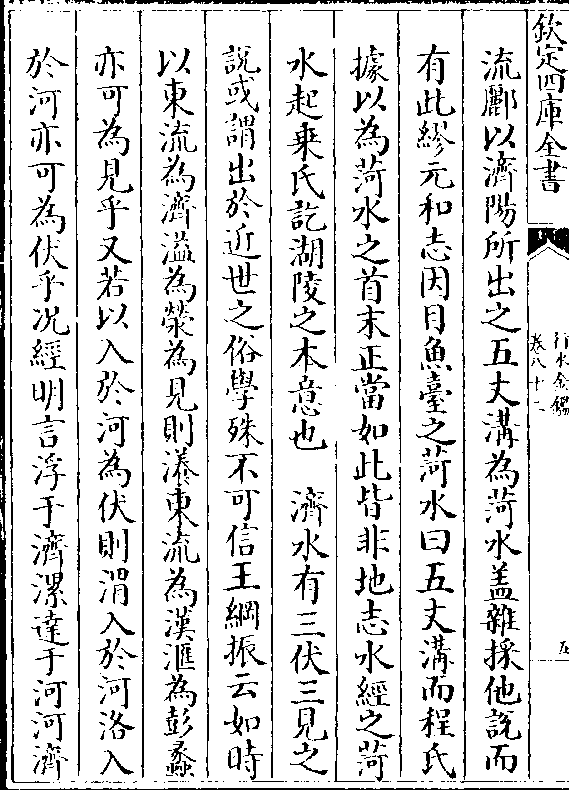 欽定四庫全書
行水金鑑
卷八十二
五
流酈以濟陽所出之五丈溝為菏水蓋雜採他說而
有此繆元和志因目魚臺之菏水曰五丈溝而程氏
據以為菏水之首末正當如此皆非地志水經之菏
水起乗氏訖湖陵之本意也　濟水有三伏三見之
說或謂出於近世之俗學殊不可信王綱振云如時
以東流為濟溢為滎為見則瀁東流為漢滙為彭蠡
亦可為見乎又若以入於河為伏則渭入於河洛入
於河亦可為伏乎况經明言浮于濟漯達于河河濟